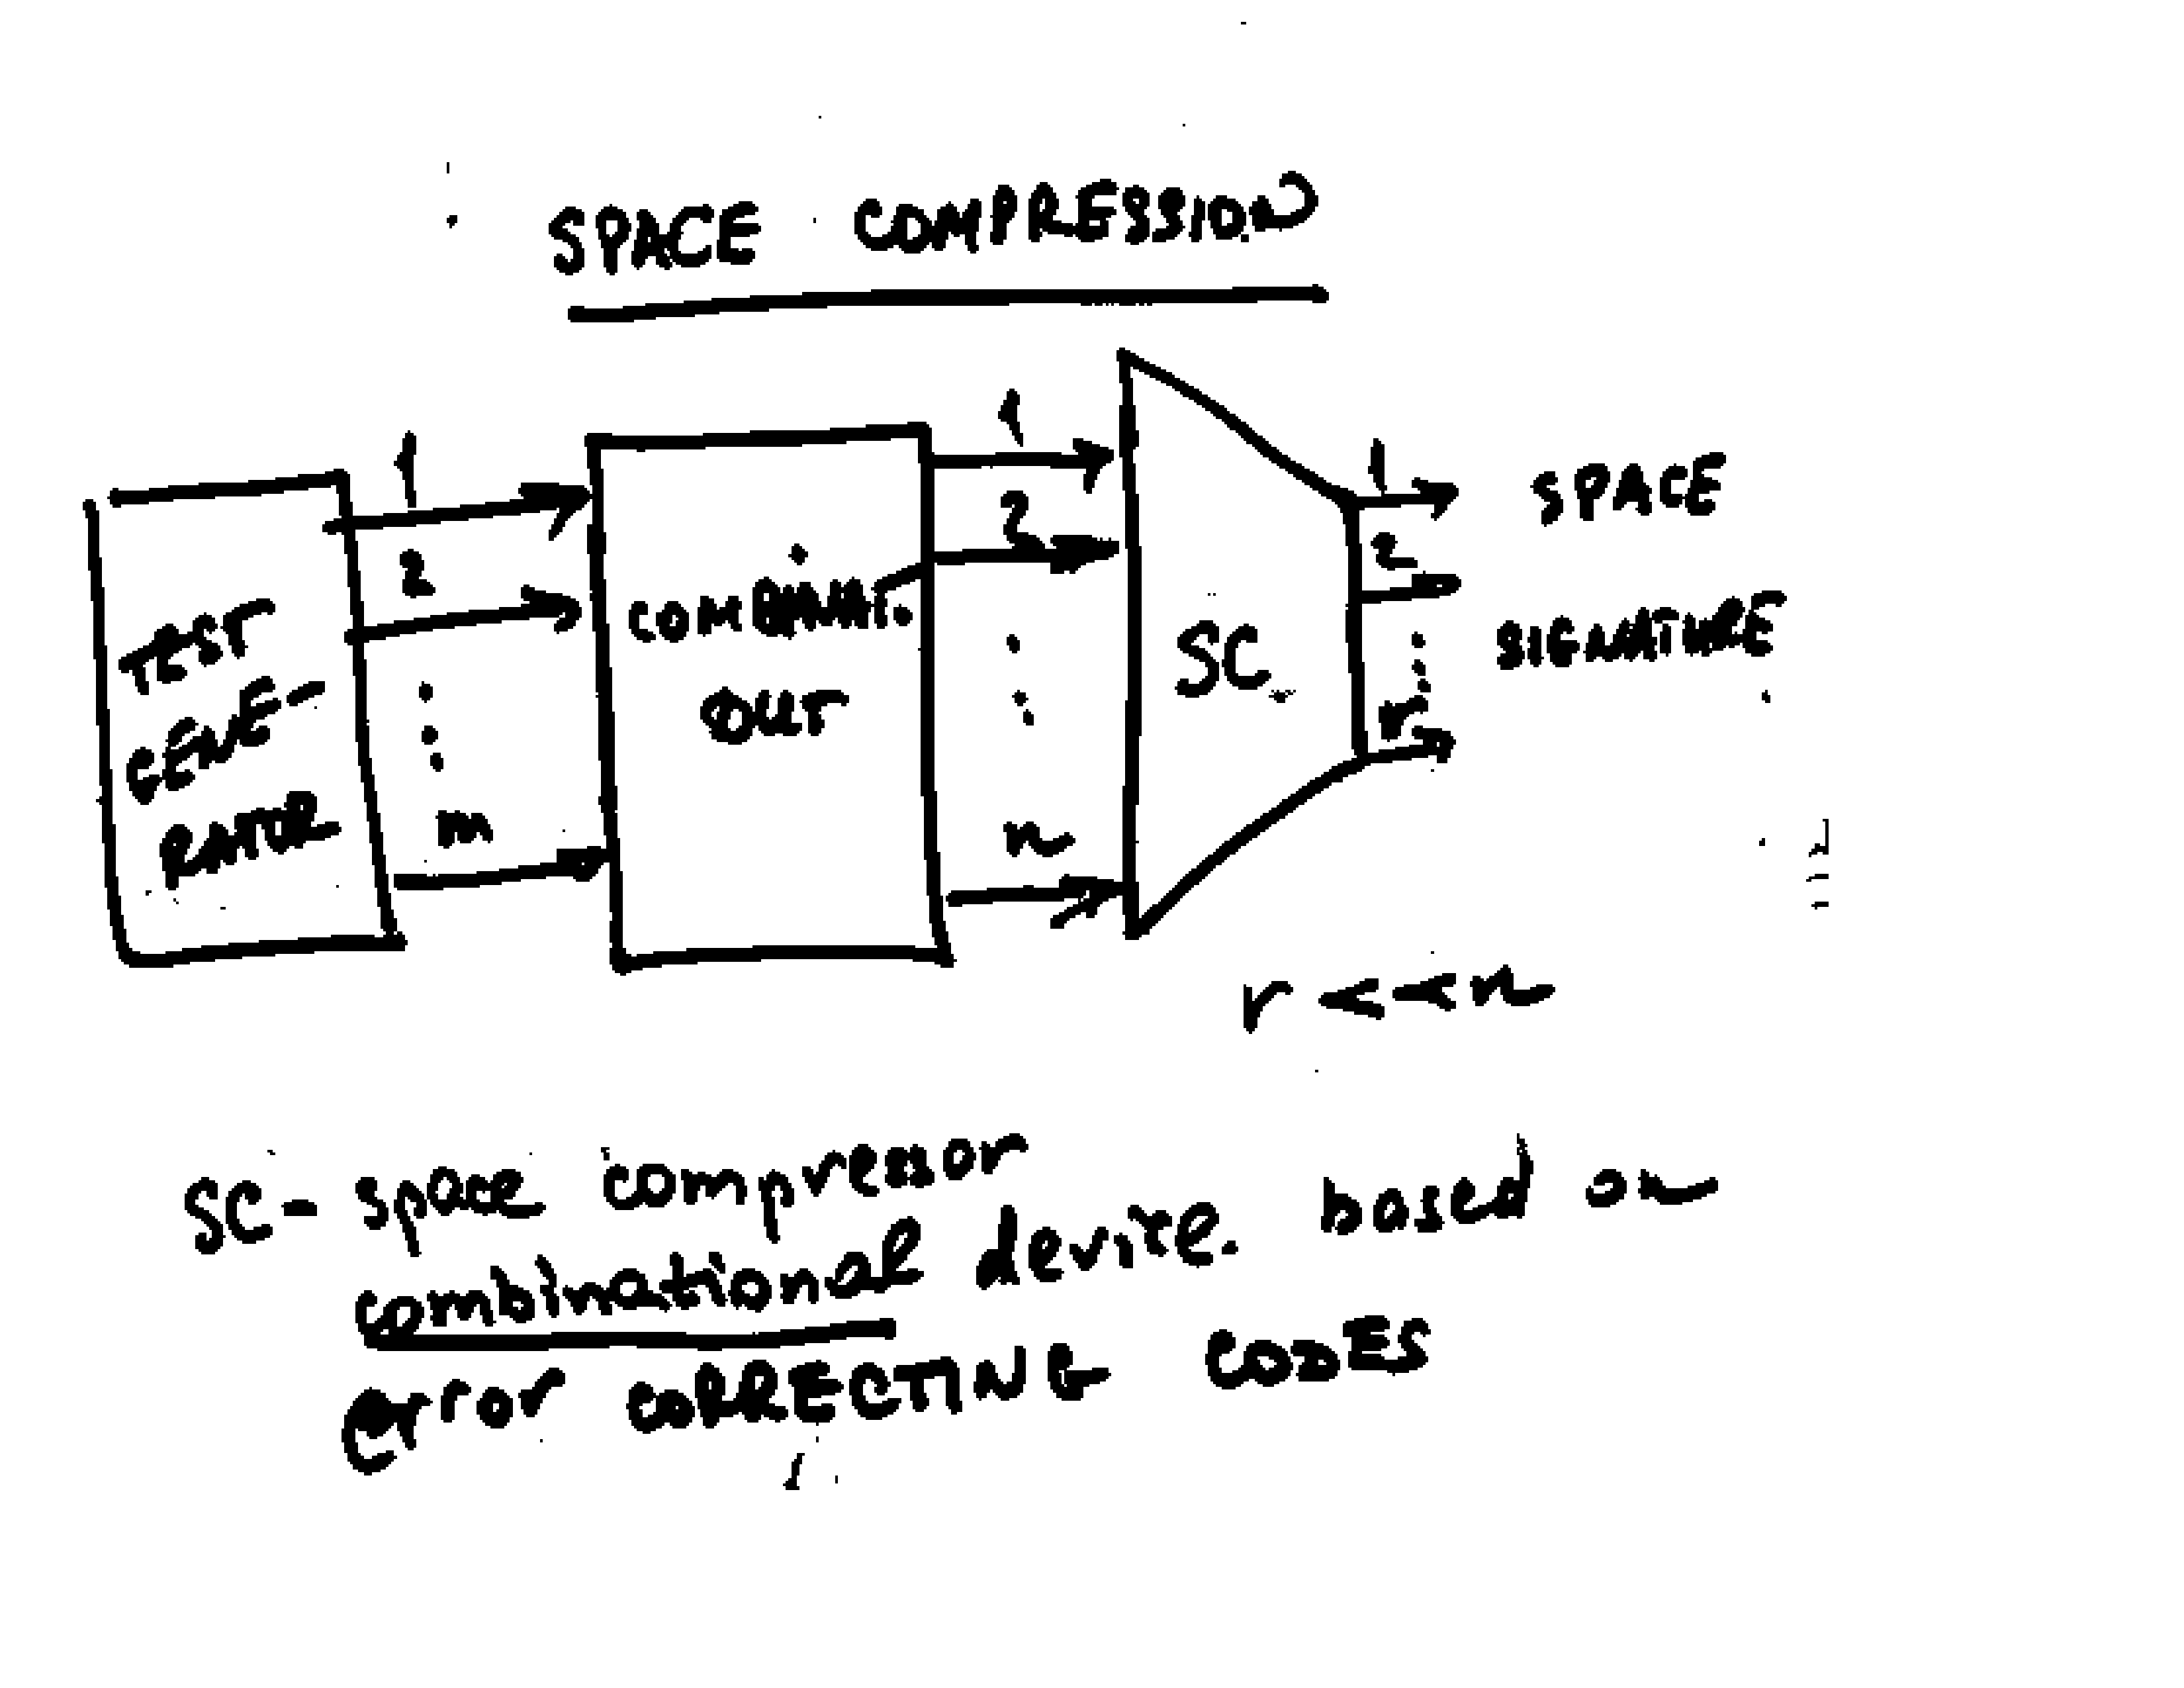 SPACE COMPRESSION
TEST
GENE-
RATOR
1
2
m
COMBINAT.
DUT
1
2
n
SC
1
2
r
SPACE
SIGNATURE
r << n
SC - space compressor
combinational device. based on
error CORRECTING CODES